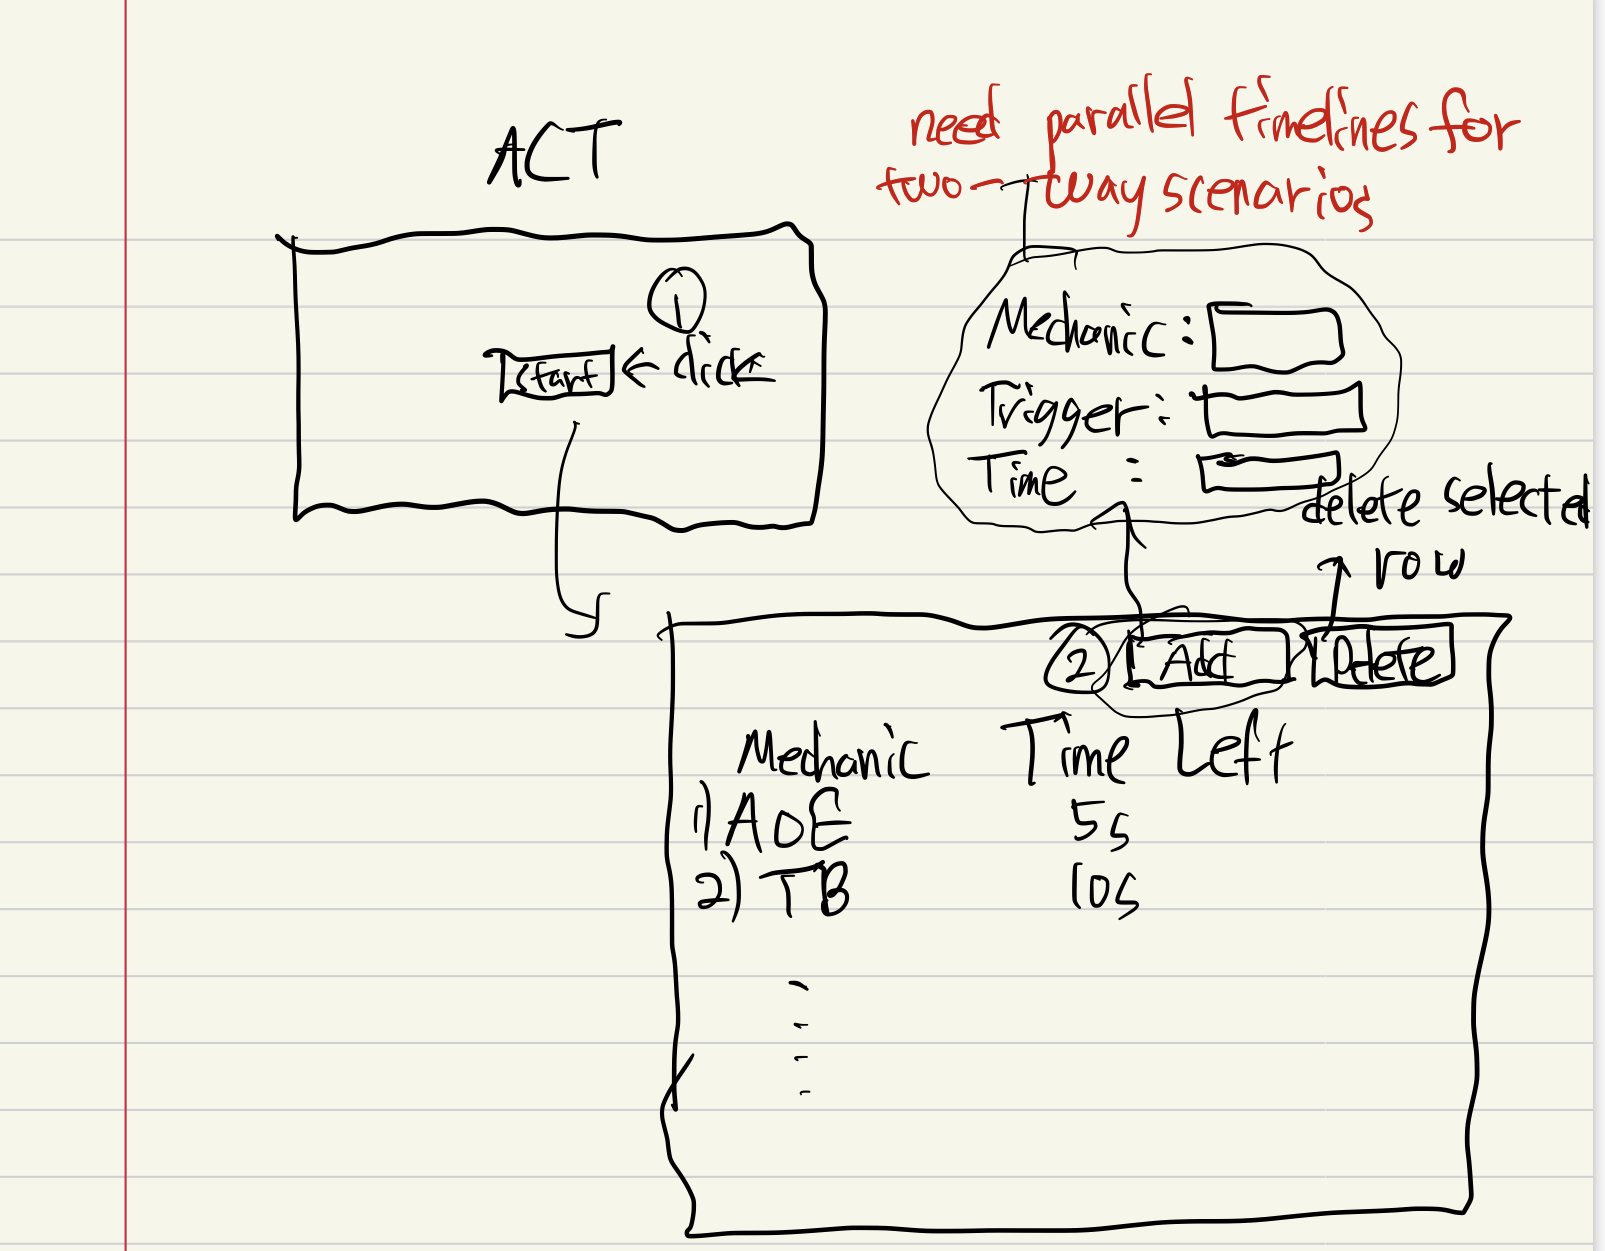 ACT
need parallel timelines for
two-way scenarios
1
start ← click
Mechanic :
Trigger :
Time :
delete selected
row
2 Add Delete
Mechanic Time Left
1) AOE 5s
2) TB 10s